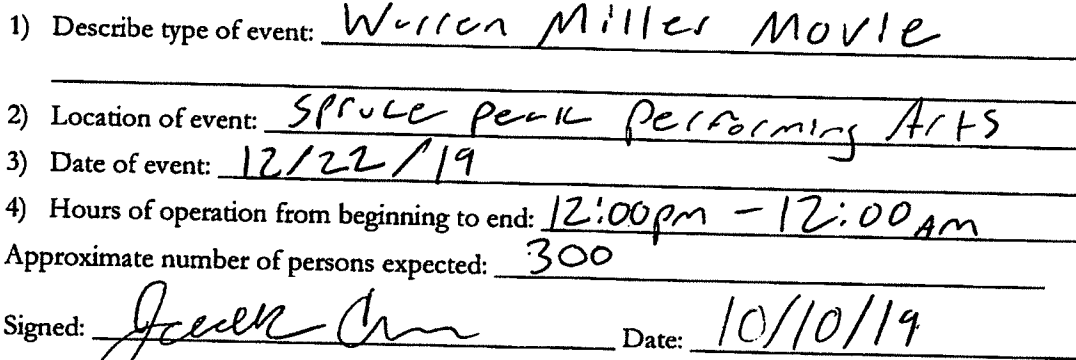 1) Describe type of event: Warren Miller Movie
2) Location of event: Spruce Peak Performing Arts
3) Date of event: 12/22/19
4) Hours of operation from beginning to end: 12:00pm - 12:00AM
Approximate number of persons expected: 300
Signed: Date: 10/10/19